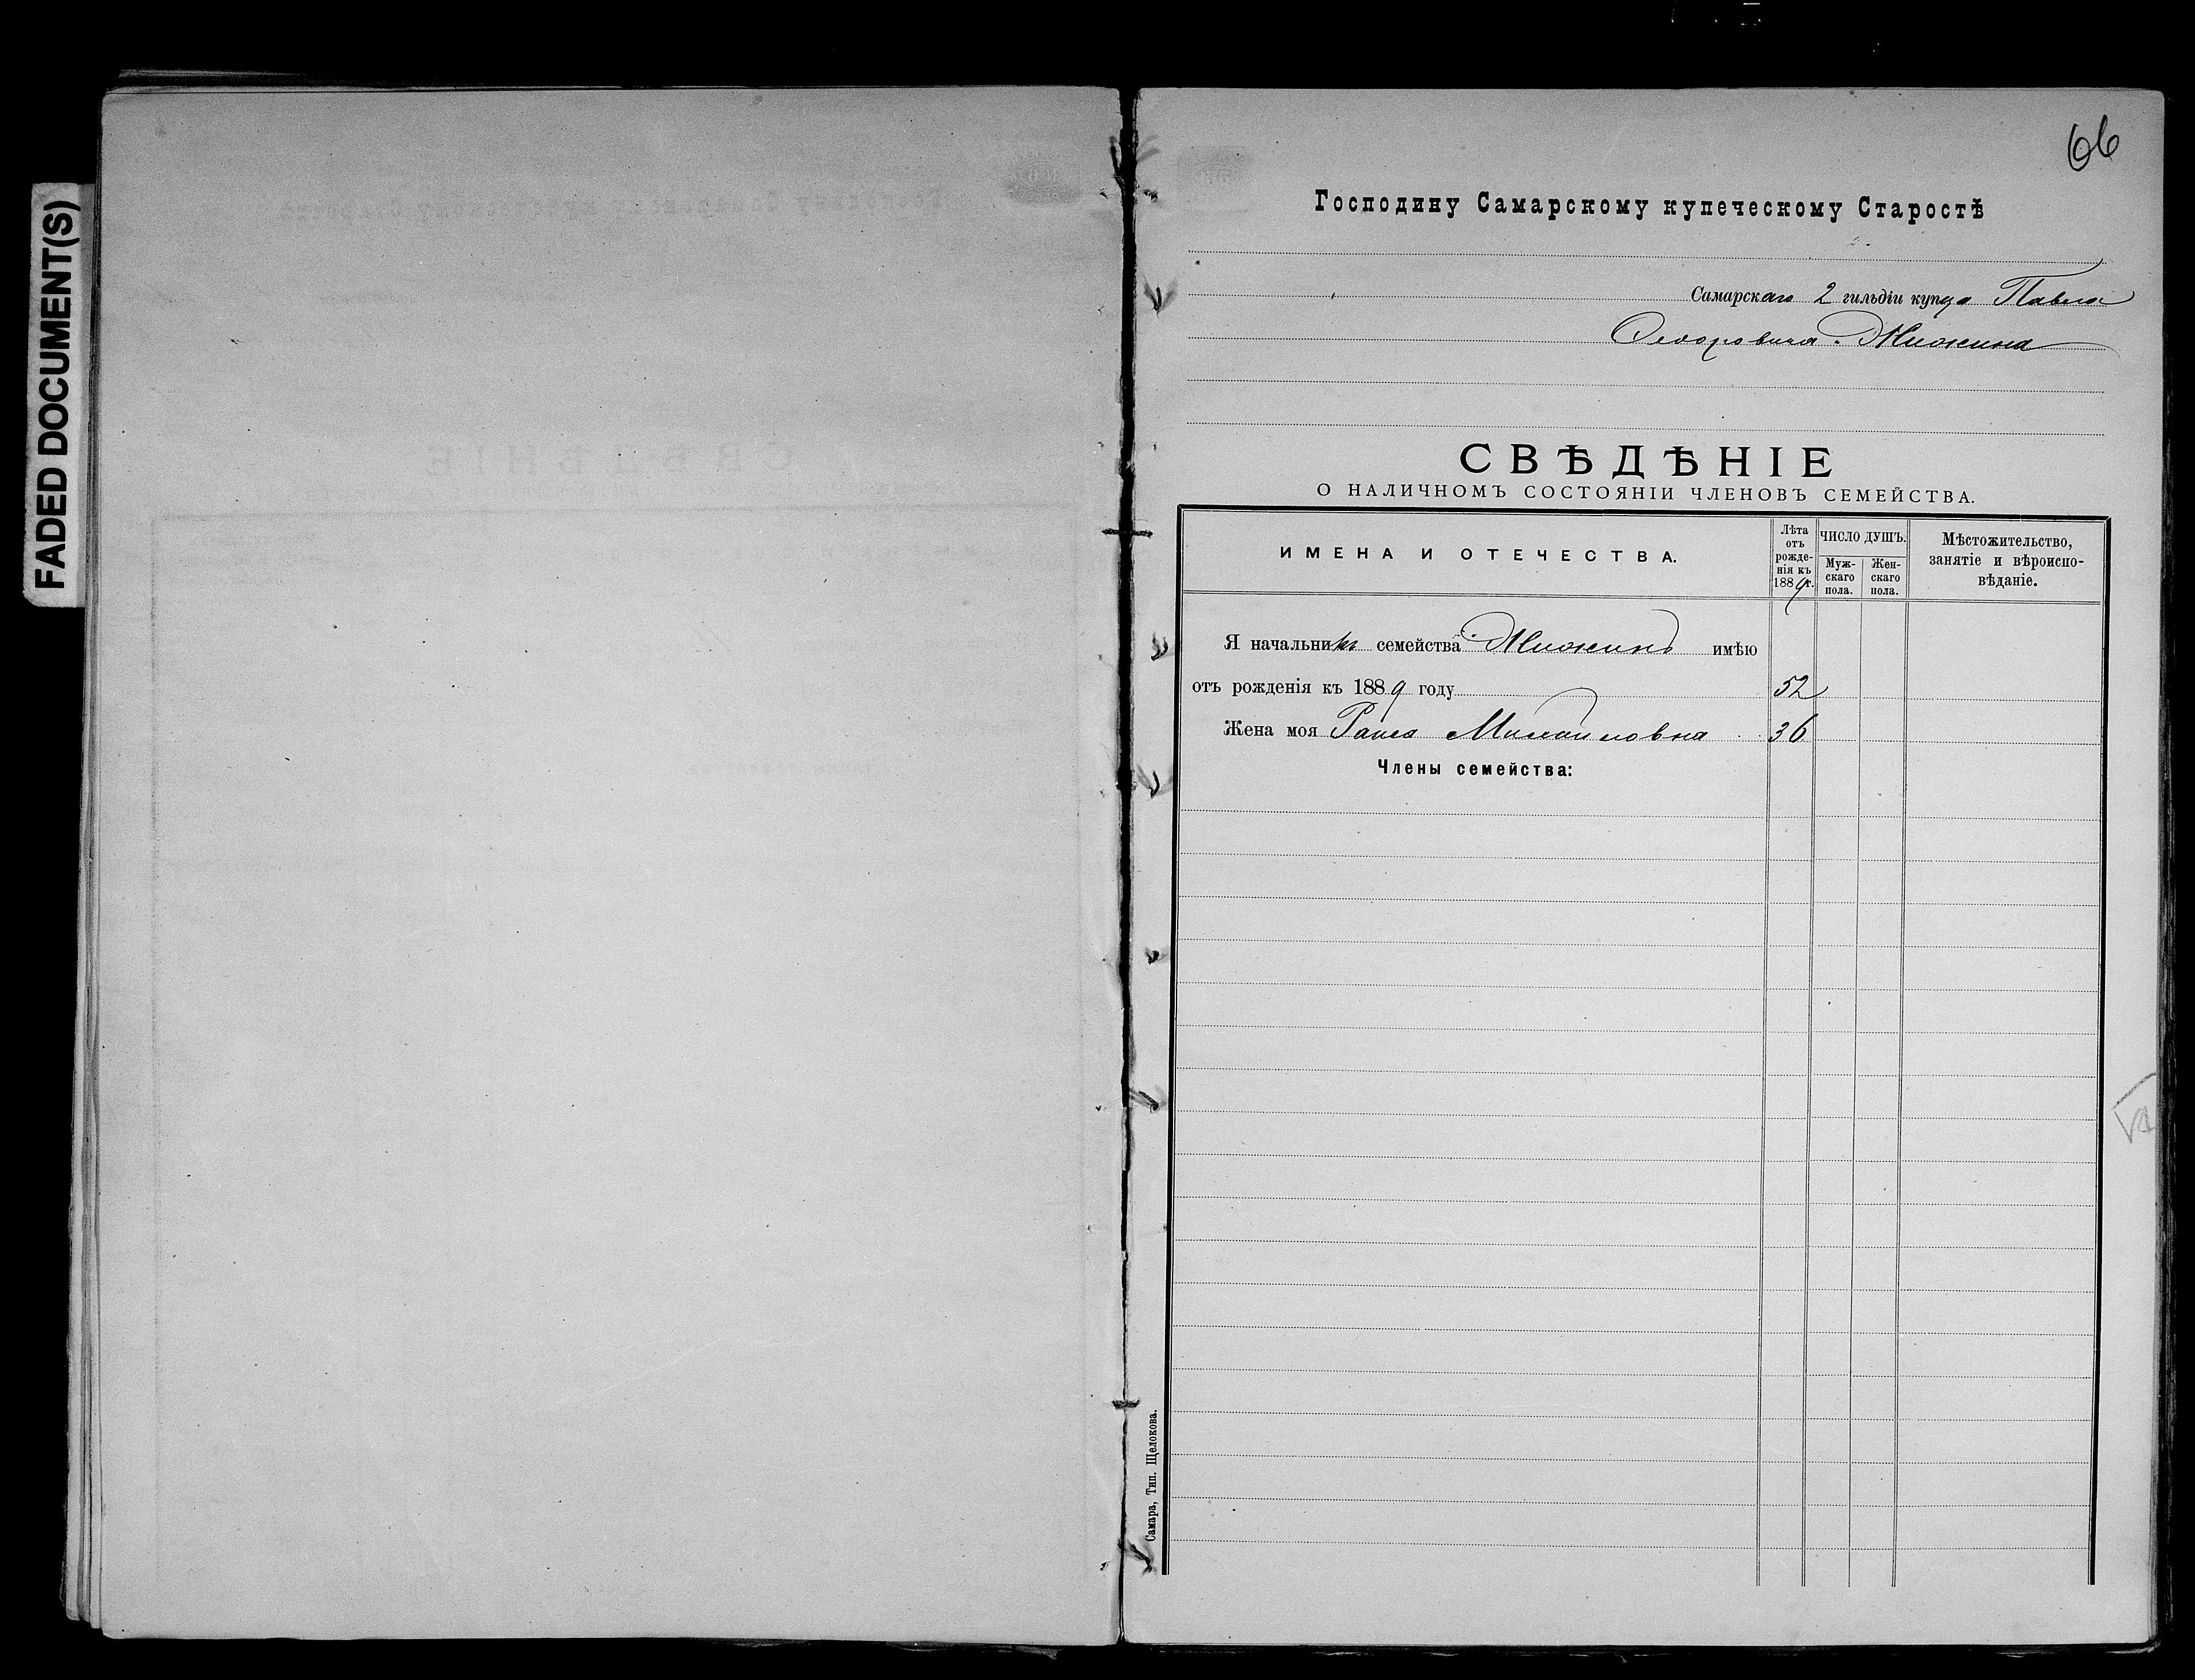 FADED DOCUMENT(S)
66
Господину Самарскому купеческому Старостѣ
Самарскаго 2 гильдіи купца Павла
Ѳедоровича
СВѢДѢНІЕ
О НАЛИЧНОМЪ СОСТОЯНІИ ЧЛЕНОВЪ СЕМЕЙСТВА.
ИМЕНА И ОТЕЧЕСТВА.
Лѣта
отъ
рожде-
нія къ
1889 г.
ЧИСЛО ДУШЪ.
Муж-
скаго
пола.
Жен-
скаго
пола.
Мѣстожительство,
занятіе и вѣроиспо-
вѣданіе.
Я начальникъ семейства имѣю
отъ рожденія къ 1889 году 52
Жена моя Раиса Михаиловна 36
Члены семейства:
Самара, Тип. Щелокова.